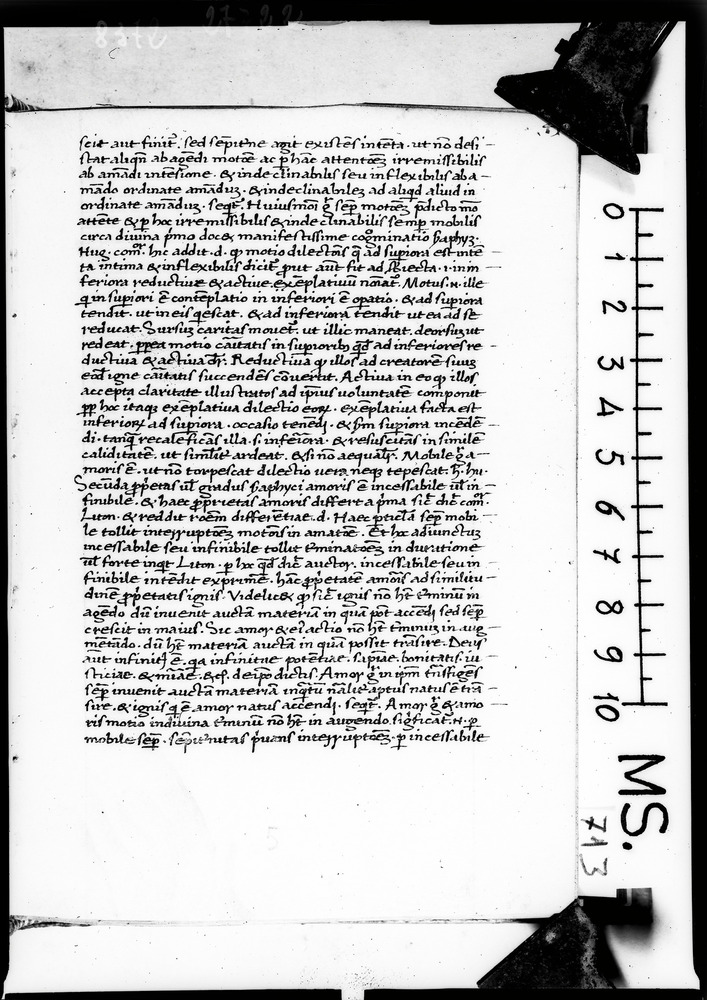 scit aut finit̄. sed sēpitne agit existēs intēta. ut nō desi
stat aliqn̄ ab agēdi motōe ac p̄ hāc attentōeȝ irremissibilis
ab amādi intēsione. & inde clinabilis seu inflexibilis ab a
mādo ordinate amāduȝ. & indeclinabileȝ ad aliqd aliud in
ordinate amāduȝ. seqt̄. Huiusmōi g̊ semp̄ motōeȝ p̄dicto mō
attēte & p̄ hoc irremissibilis & inde clinabilis semp̄ mobilis
circa diuina p̄mo docet manifestissime cogminatio
Hug. com̄. hic addit. d. q motio dilectōis q̄ ad supiora est intē
ta intima & inflexibilis dicit̄ put aūt fit ad .i. in in
feriora reductiue & actiue exēplatiuū noīat̄. Motus .n. ille
q in supiori ē contēplatio in inferiori ē opatio. & ad supiora
tendit. ut in eis qescat. & ad inferiora tendit ut ea ad se
reducat. Sursuȝ caritas mouet̄. ut illic maneat. deorsuȝ ut
redeat. motio cāitatis in supiorib qd̄ ad inferiores re
ductiua & actiua dr̄. Reductiua q illos ad creatorē suuȝ
eod̄ igne cāitatis succendēs cōuertit. Actiua in eo q illos
accepta claritate illustratos ad ip̄ius uoluntatē componit
pp̄ hoc itaq exēplatiua dilectio eorȝ. exēplatiua facta est
inferiorȝ ad supiora. occasio tenēdi. & sm̄ supiora incedē
di. tanq̄ recaleficās illa .s. inferiora. & resuscitās in similē
caliditatē. ut similit̄ ardeat. & si nō aequalit̄. Mobile g̊ a
moris ē. ut nō torpescat dilectio uera neqȝ tepescat. h̄. hu.
Secūda p̄p̄etas ul̄ gradus amoris ē incessabile ul̄ in
finibile. & haec p̄prietas amoris differt a p̄ma sic̄ dic̄ com̄.
Licon. & reddit roēm differētiae .d. Haec pticl̄a semp̄ mobi
le tollit interruptōeȝ motōis in amatōe. Et hoc adiunctuȝ
incessabile seu infinibile tollit tminatōeȝ in duratione
ul̄ forte inqt Licon. p̄ hoc qd̄ dic̄ auctor. incessabile seu in
finibile intēdit exprimē. hāc p̄p̄etatē amōis ad similitu
dinē p̄p̄etatis ignis. Videlicet q sic̄ ignis nō h̄t tminū in
agēdo dū inuenit auctā materiā in quā pōt accedi sed semp̄
crescit in maius. Sic amor & ei' actio nō h̄t tminuȝ in aug
mētādo. dū h̄t materiā auctā in quā possit trāsire. Deus
aūt infinit' ē. qa infinitae potētiae. sapīae. bonitatis. iu
sticiae. & mīae. & c̄. de ipo dictis. Amor g̊ in ip̄m trāsfigēs
semp̄ inuenit auctā materiā inq̄tū nālit̄ aptus natus ē trā
sire. & ignis q ē amor natus accendi. seqt̄. Amor g̊ & amo
ris motio in diuina tminū nō h̄t in augendo. sigficat .n. p
mobile semp̄. sēpitnitas p̄uans interruptōeȝ. p incessabile
0 1 2 3 4 5 6 7 8 9 10
MS.
713